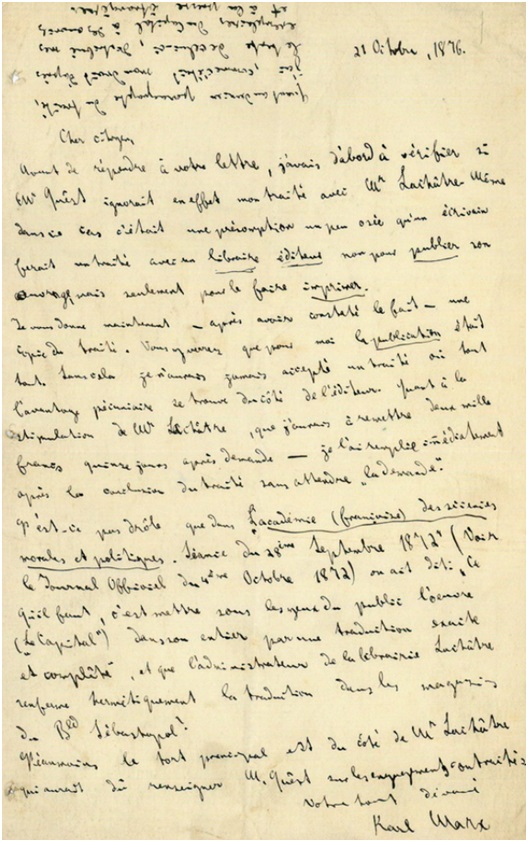 21 Octobre, 1876.
Cher citoyen
Avant de répondre à votre lettre, j'avais d'abord à vérifier si
Mr Quêst ignorait en effet mon traité avec Mr Lachâtre. Même
dans ce cas c'était une présomption un peu osée qu'un écrivain
ferait un traité avec un libraire éditeur non pour publier son
ouvrage mais seulement pour le faire imprimer.
Je vous donne maintenant — après avoir constaté le fait — une
copie du traité. Vous y verrez que pour moi la publication était
tout. Sans cela je n'aurais jamais accepté un traité où tout
l'avantage pécuniaire se trouve du côté de l'éditeur. Quant à la
stipulation de Mr Lachâtre, que j'aurais à remettre deux mille
francs quinze jours après demande — je l'ai remplie immédiatement
après la conclusion du traité sans attendre „la demande".
N'est-ce pas drôle que dans L'académie (française) des sciences
morales et politiques. Séance du 28ème Septembre 1872" (Voir
le Journal Officiel du 4ème Octobre 1872) on ait dit: „Ce
qu'il faut, c'est mettre sous les yeux du public l'oeuvre
(„Le Capital") dans son entier par une traduction exacte
et complète, et que l'administrateur de la librairie Lachâtre
renferme hermétiquement la traduction dans les magasins
du Bd Sébastopol?
Néanmoins le tort principal est du côté de Mr Lachâtre
qui aurait dû renseigner M. Quêst sur les engagements contractés.
Votre tout dévoué
Karl Marx
Quant au dernier paragraphe du traité,
j'ai, comme c'était mon droit d'après
exemplaires du Capital
et à la presse étrangères